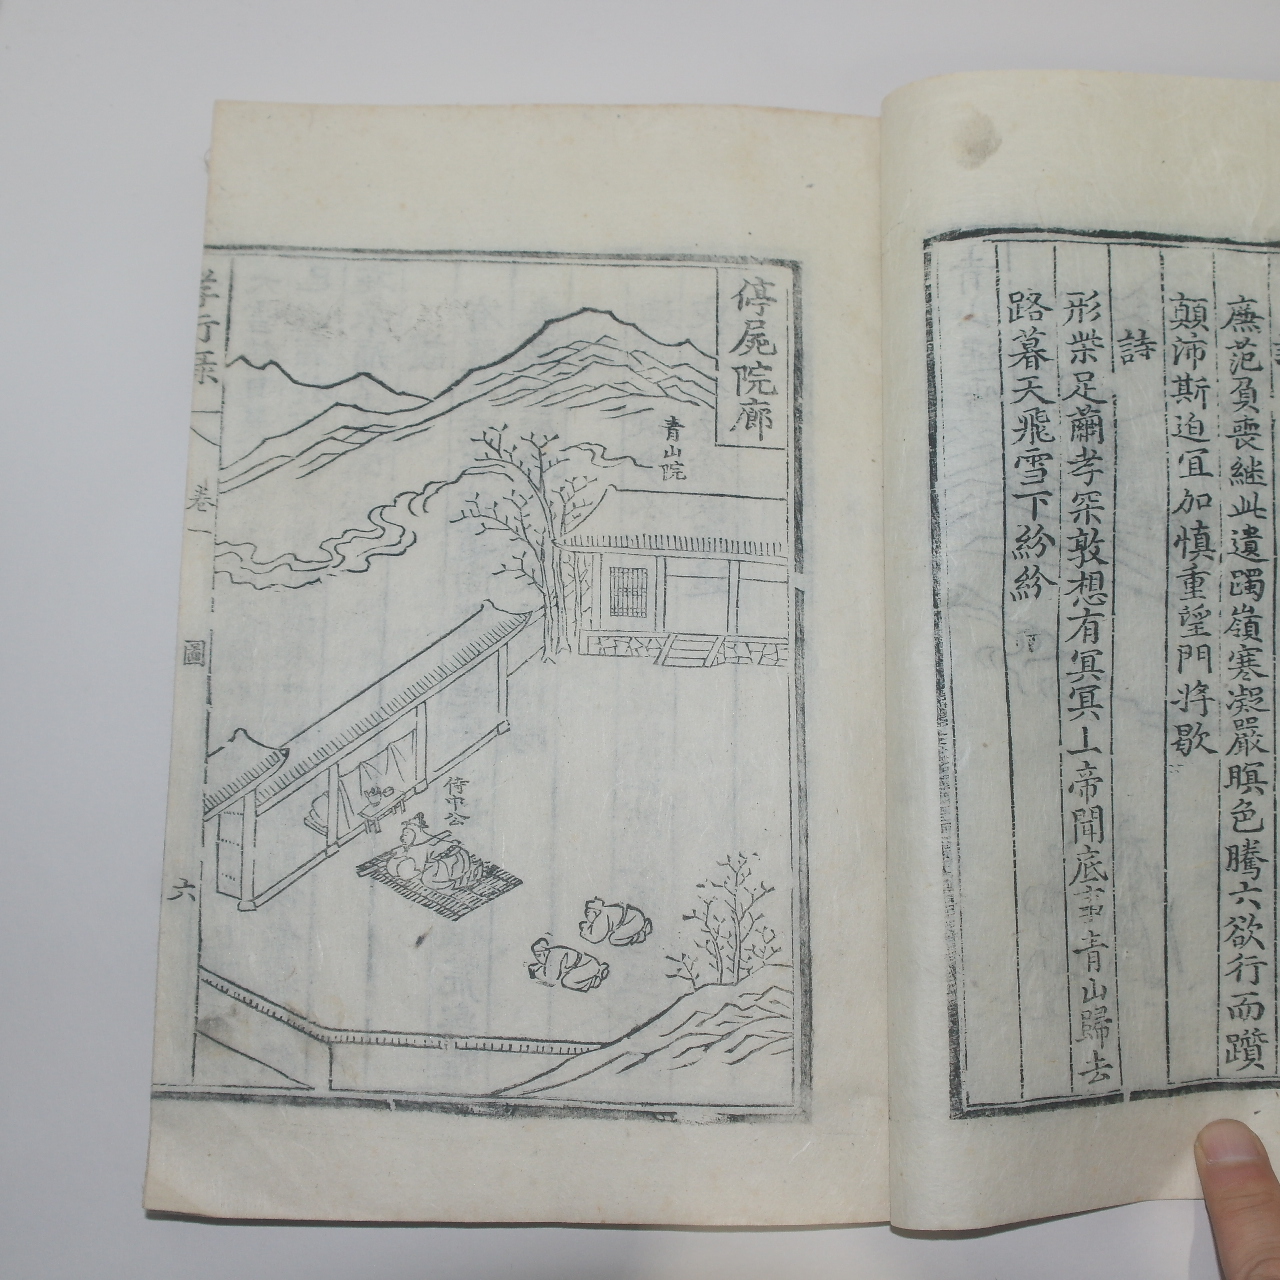 廉范負喪継此遺躅嶺寒凝嚴暝色騰六欲行而躓
顛沛斯迫宜加慎重望門將歇
詩
形柴足繭孝罙敦想有冥冥上帝聞底事青山歸去
路暮天飛雪下紛紛
停屍院廊
青山院
侍中公
孝行錄
卷一
圖
六